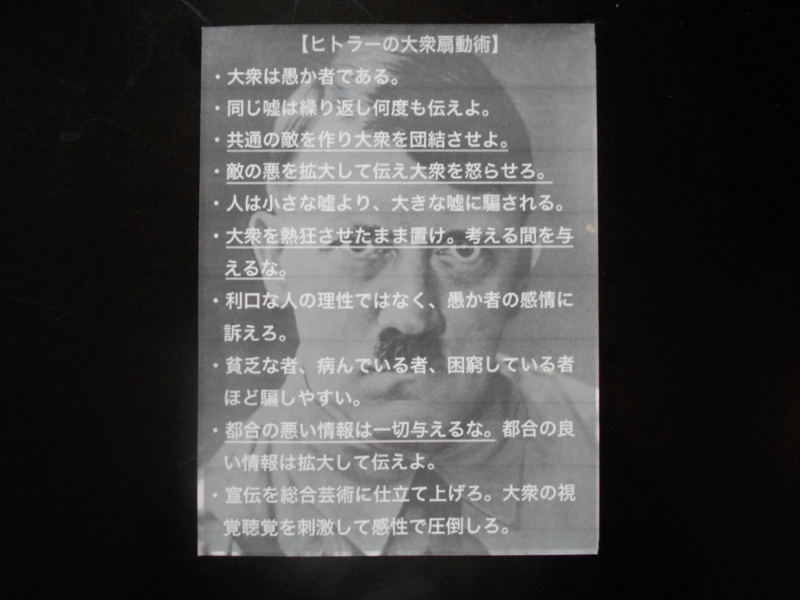 【ヒトラーの大衆扇動術】
・大衆は愚か者である。
・同じ嘘は繰り返し何度も伝えよ。
・共通の敵を作り大衆を団結させよ。
・敵の悪を拡大して伝え大衆を怒らせろ。
・人は小さな嘘より、大きな嘘に騙される。
・大衆を熱狂させたまま置け。考える間を与
えるな。
・利口な人の理性ではなく、愚か者の感情に
訴えろ。
・貧乏な者、病んでいる者、困窮している者
ほど騙しやすい。
・都合の悪い情報は一切与えるな。都合の良
い情報は拡大して伝えよ。
・宣伝を総合芸術に仕立て上げろ。大衆の視
覚聴覚を刺激して感性で圧倒しろ。